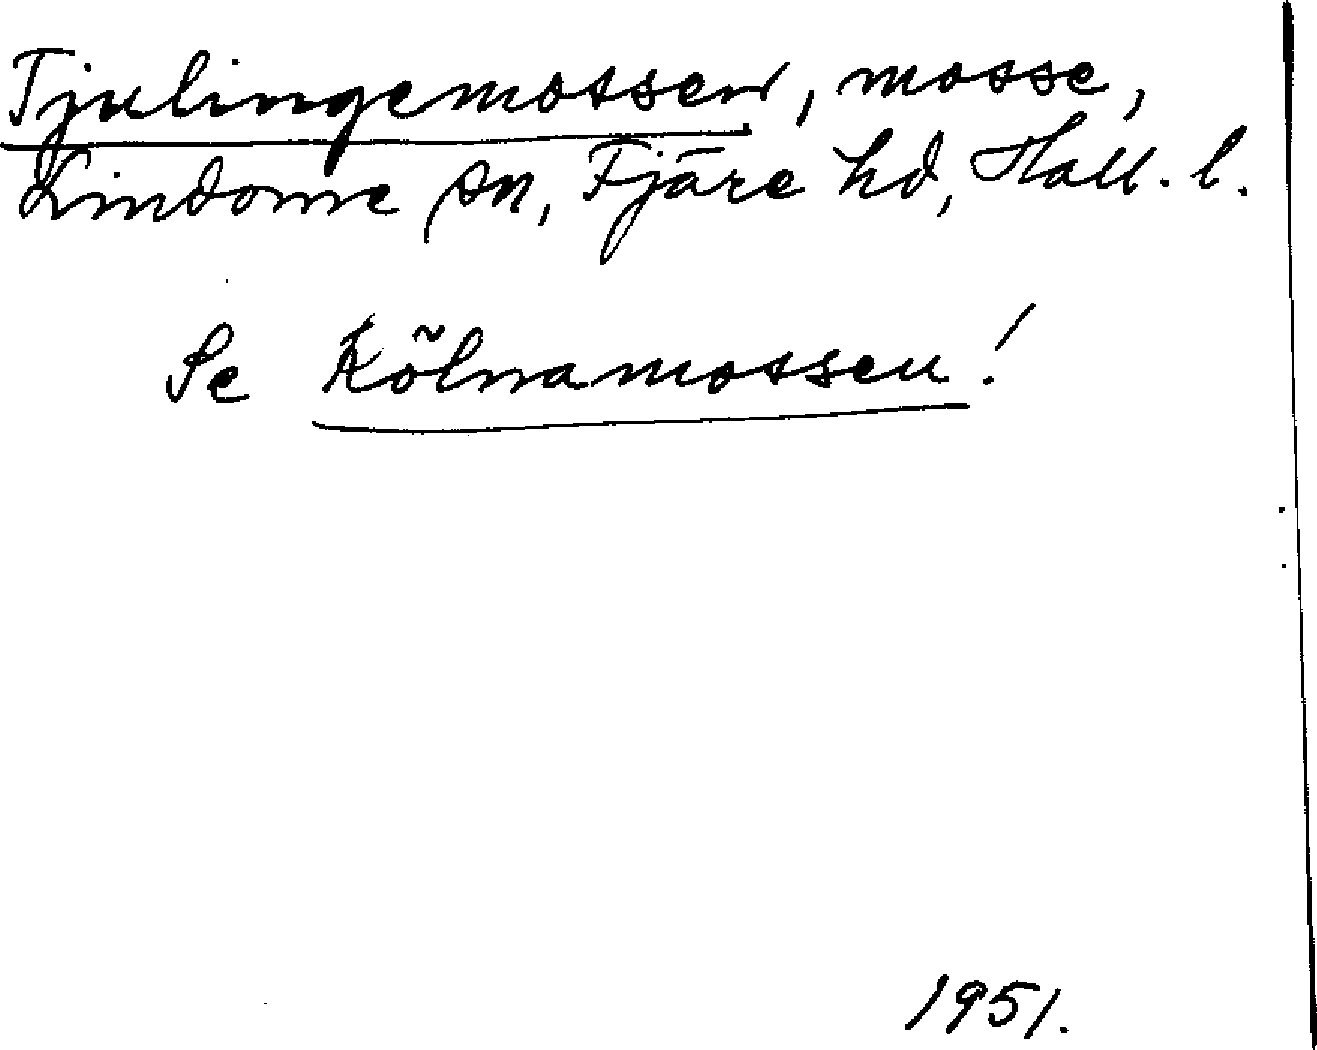 Tjulingemossen, mosse,
Lindome sn, Fjäre hd, Hall. l.
Se Kölnamossen!
1951.